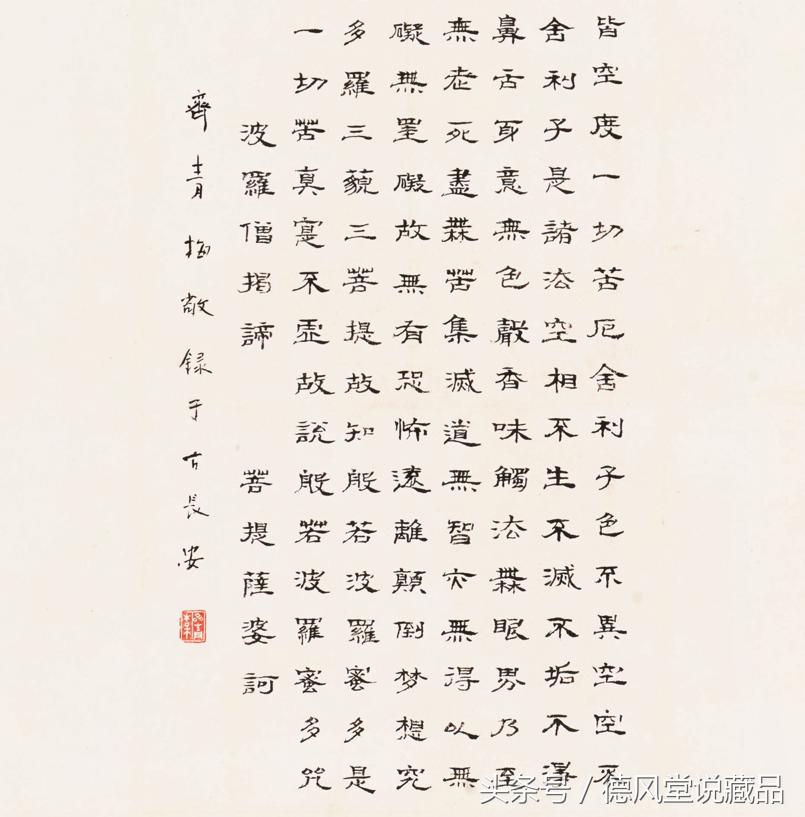 皆空度一切苦厄舍利子色不異空空不
舍利子是諸法空相不生不滅不垢不淨
鼻舌身意無色聲香味觸法無眼界乃至
無老死盡無苦集滅道無智亦無得以無
礙無罣礙故無有恐怖遠離顛倒梦想究
多羅三藐三菩提故知般若波羅蜜多是
一切苦真實不虛故說般若波羅蜜多咒
波羅僧揭諦 菩提薩婆訶
齊青梅敬録于古長安
头条号 / 德风堂说藏品